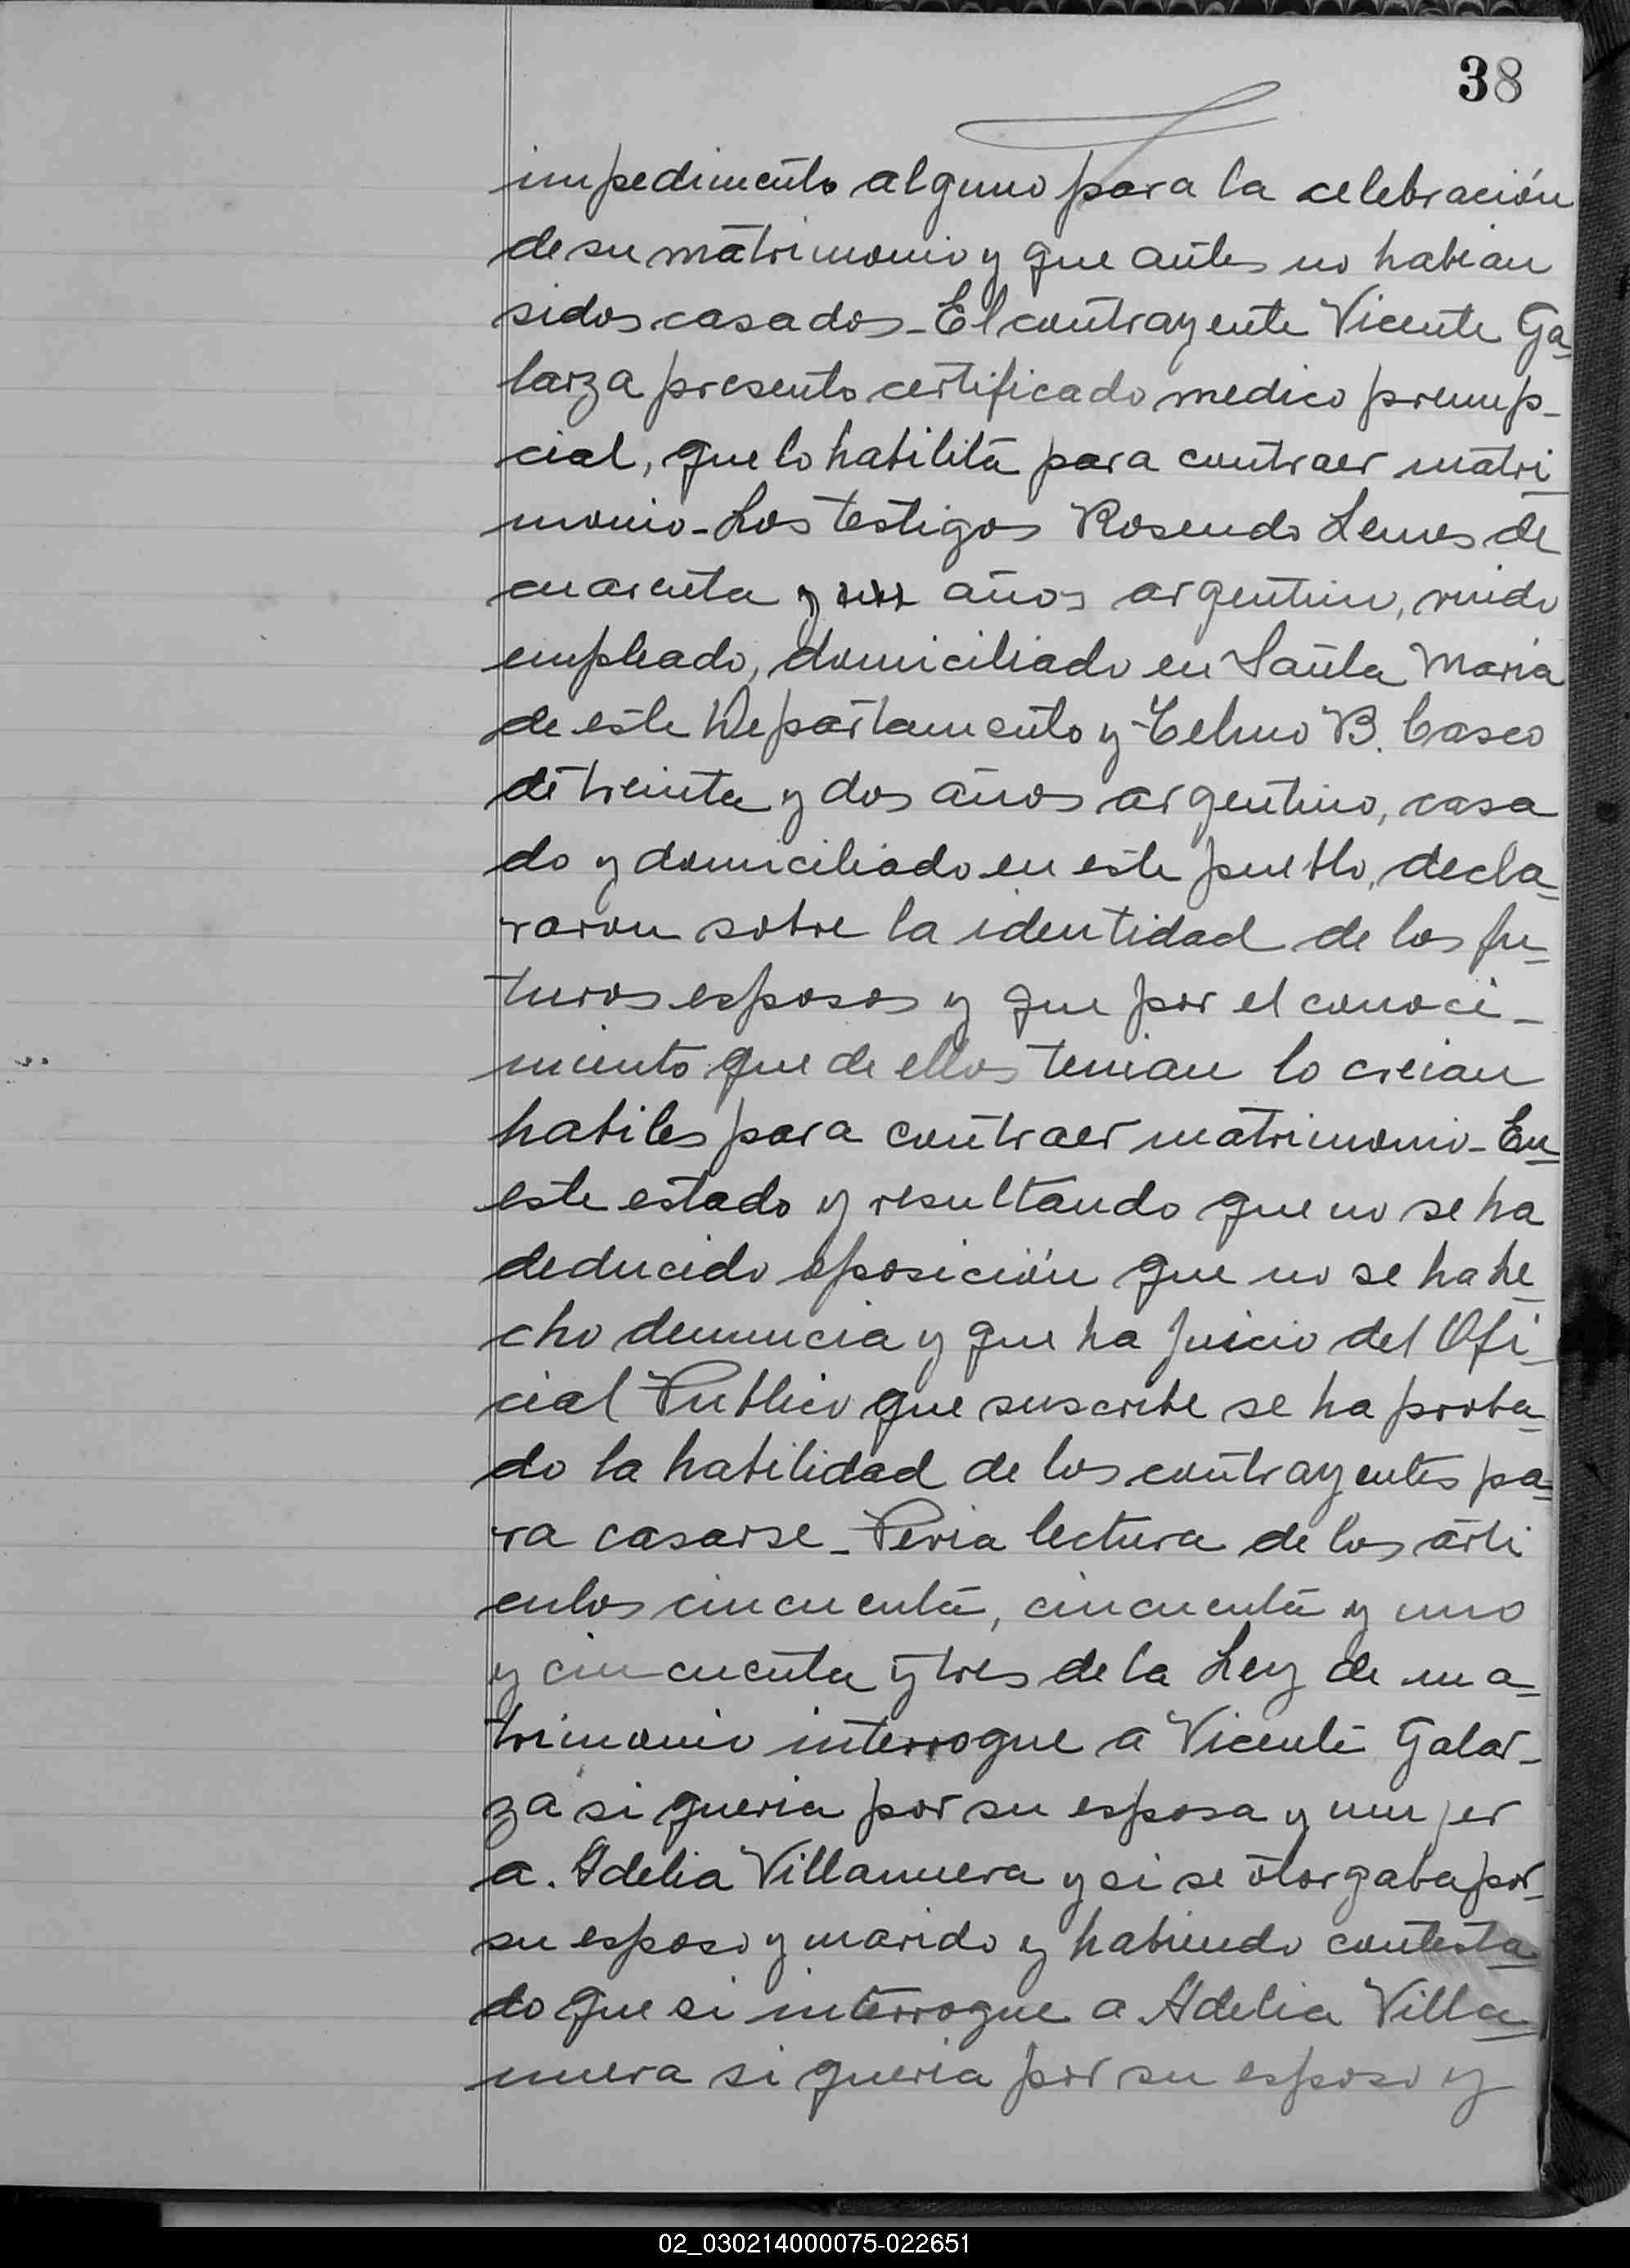 38
impedimento alguno para la celebración
de su matrimonio y que antes no habian
sidos casados_ El contrayente Vicente Ga_
larza presento certificado medico prenup_
cial, que lo habilita para contraer matri_
monio_ Los testigos Rosendo Lemes de
cuarenta y años argentino, viudo
empleado, domiciliado en Santa Maria
de este Departamento y Telmo B. Casco
de treinta y dos años argentino, casa
do y domiciliado en este pueblo, decla_
raron sobre la identidad de los fu_
turos esposos y que por el conoci_
miento que de ellos tenian lo creian
habiles para contraer matrimonio_ En
este estado y resultando que no se ha
deducido oposición que no se ha he_
cho denuncia y que ha juicio del Ofi_
cial Publico que suscribe se ha proba_
do la habilidad de los contrayentes pa_
ra casarse_ Pevia lectura de los arti
culos cincuenta, cincuenta y uno
y cincuenta y tres de la Ley de ma_
trimonio interrogue a Vicente Galar_
za si queria por su esposa y mujer
a. Adelia Villanueva y si se otorgaba por_
su esposo y marido y habiendo contesta_
do que si interrogue a Adelia Villa_
nueva si queria por su esposo y
02_030214000075-022651